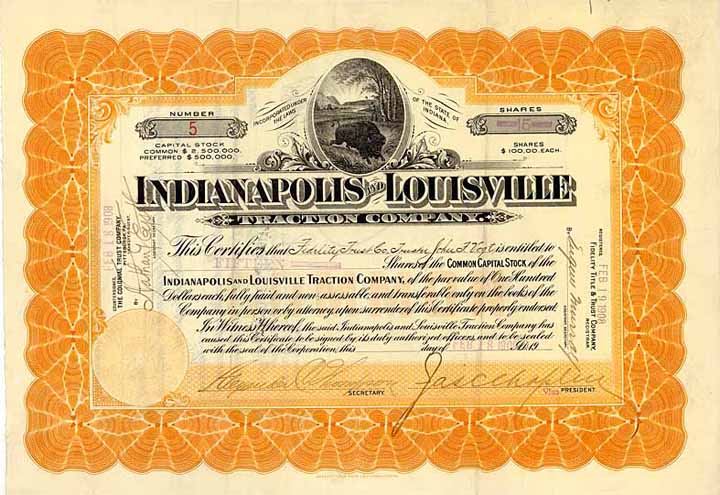 INCORPORATED UNDER THE LAWS
OF THE STATE OF INDIANA.
NUMBER
5
CAPITAL STOCK
COMMON $2,500,000.
PREFERRED $500,000.
SHARES
15
SHARES
$100.00. EACH.
INDIANAPOLIS AND LOUISVILLE
TRACTION COMPANY.
This Certifies that Fidelity Trust Co. Trustee John F. Vogt is entitled to
Shares of the COMMON CAPITAL STOCK of the
INDIANAPOLIS AND LOUISVILLE TRACTION COMPANY, of the par value of One Hundred
Dollars each, fully paid and non-assessable, and transferable only on the books of the
Company in person or by attorney, upon surrender of this Certificate properly endorsed.
In Witness Whereof, the said Indianapolis and Louisville Traction Company has
caused this Certificate to be signed by its duly authorized officers, and to be sealed
with the seal of the Corporation, this day of FEB 18 1908 A.D. 19
SECRETARY.
Vice PRESIDENT.
COUNTERSIGNED,
THE COLONIAL TRUST COMPANY,
FEB 18 1908
BY
REGISTERED
FEB 19 1908
FIDELITY TITLE & TRUST COMPANY,
REGISTRAR
BY